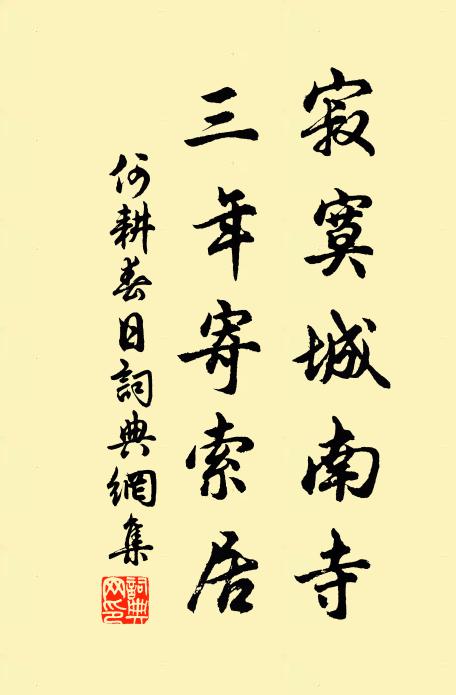 寂寞城南寺
三年寄索居
何耕春日詞典網集
詞典網印